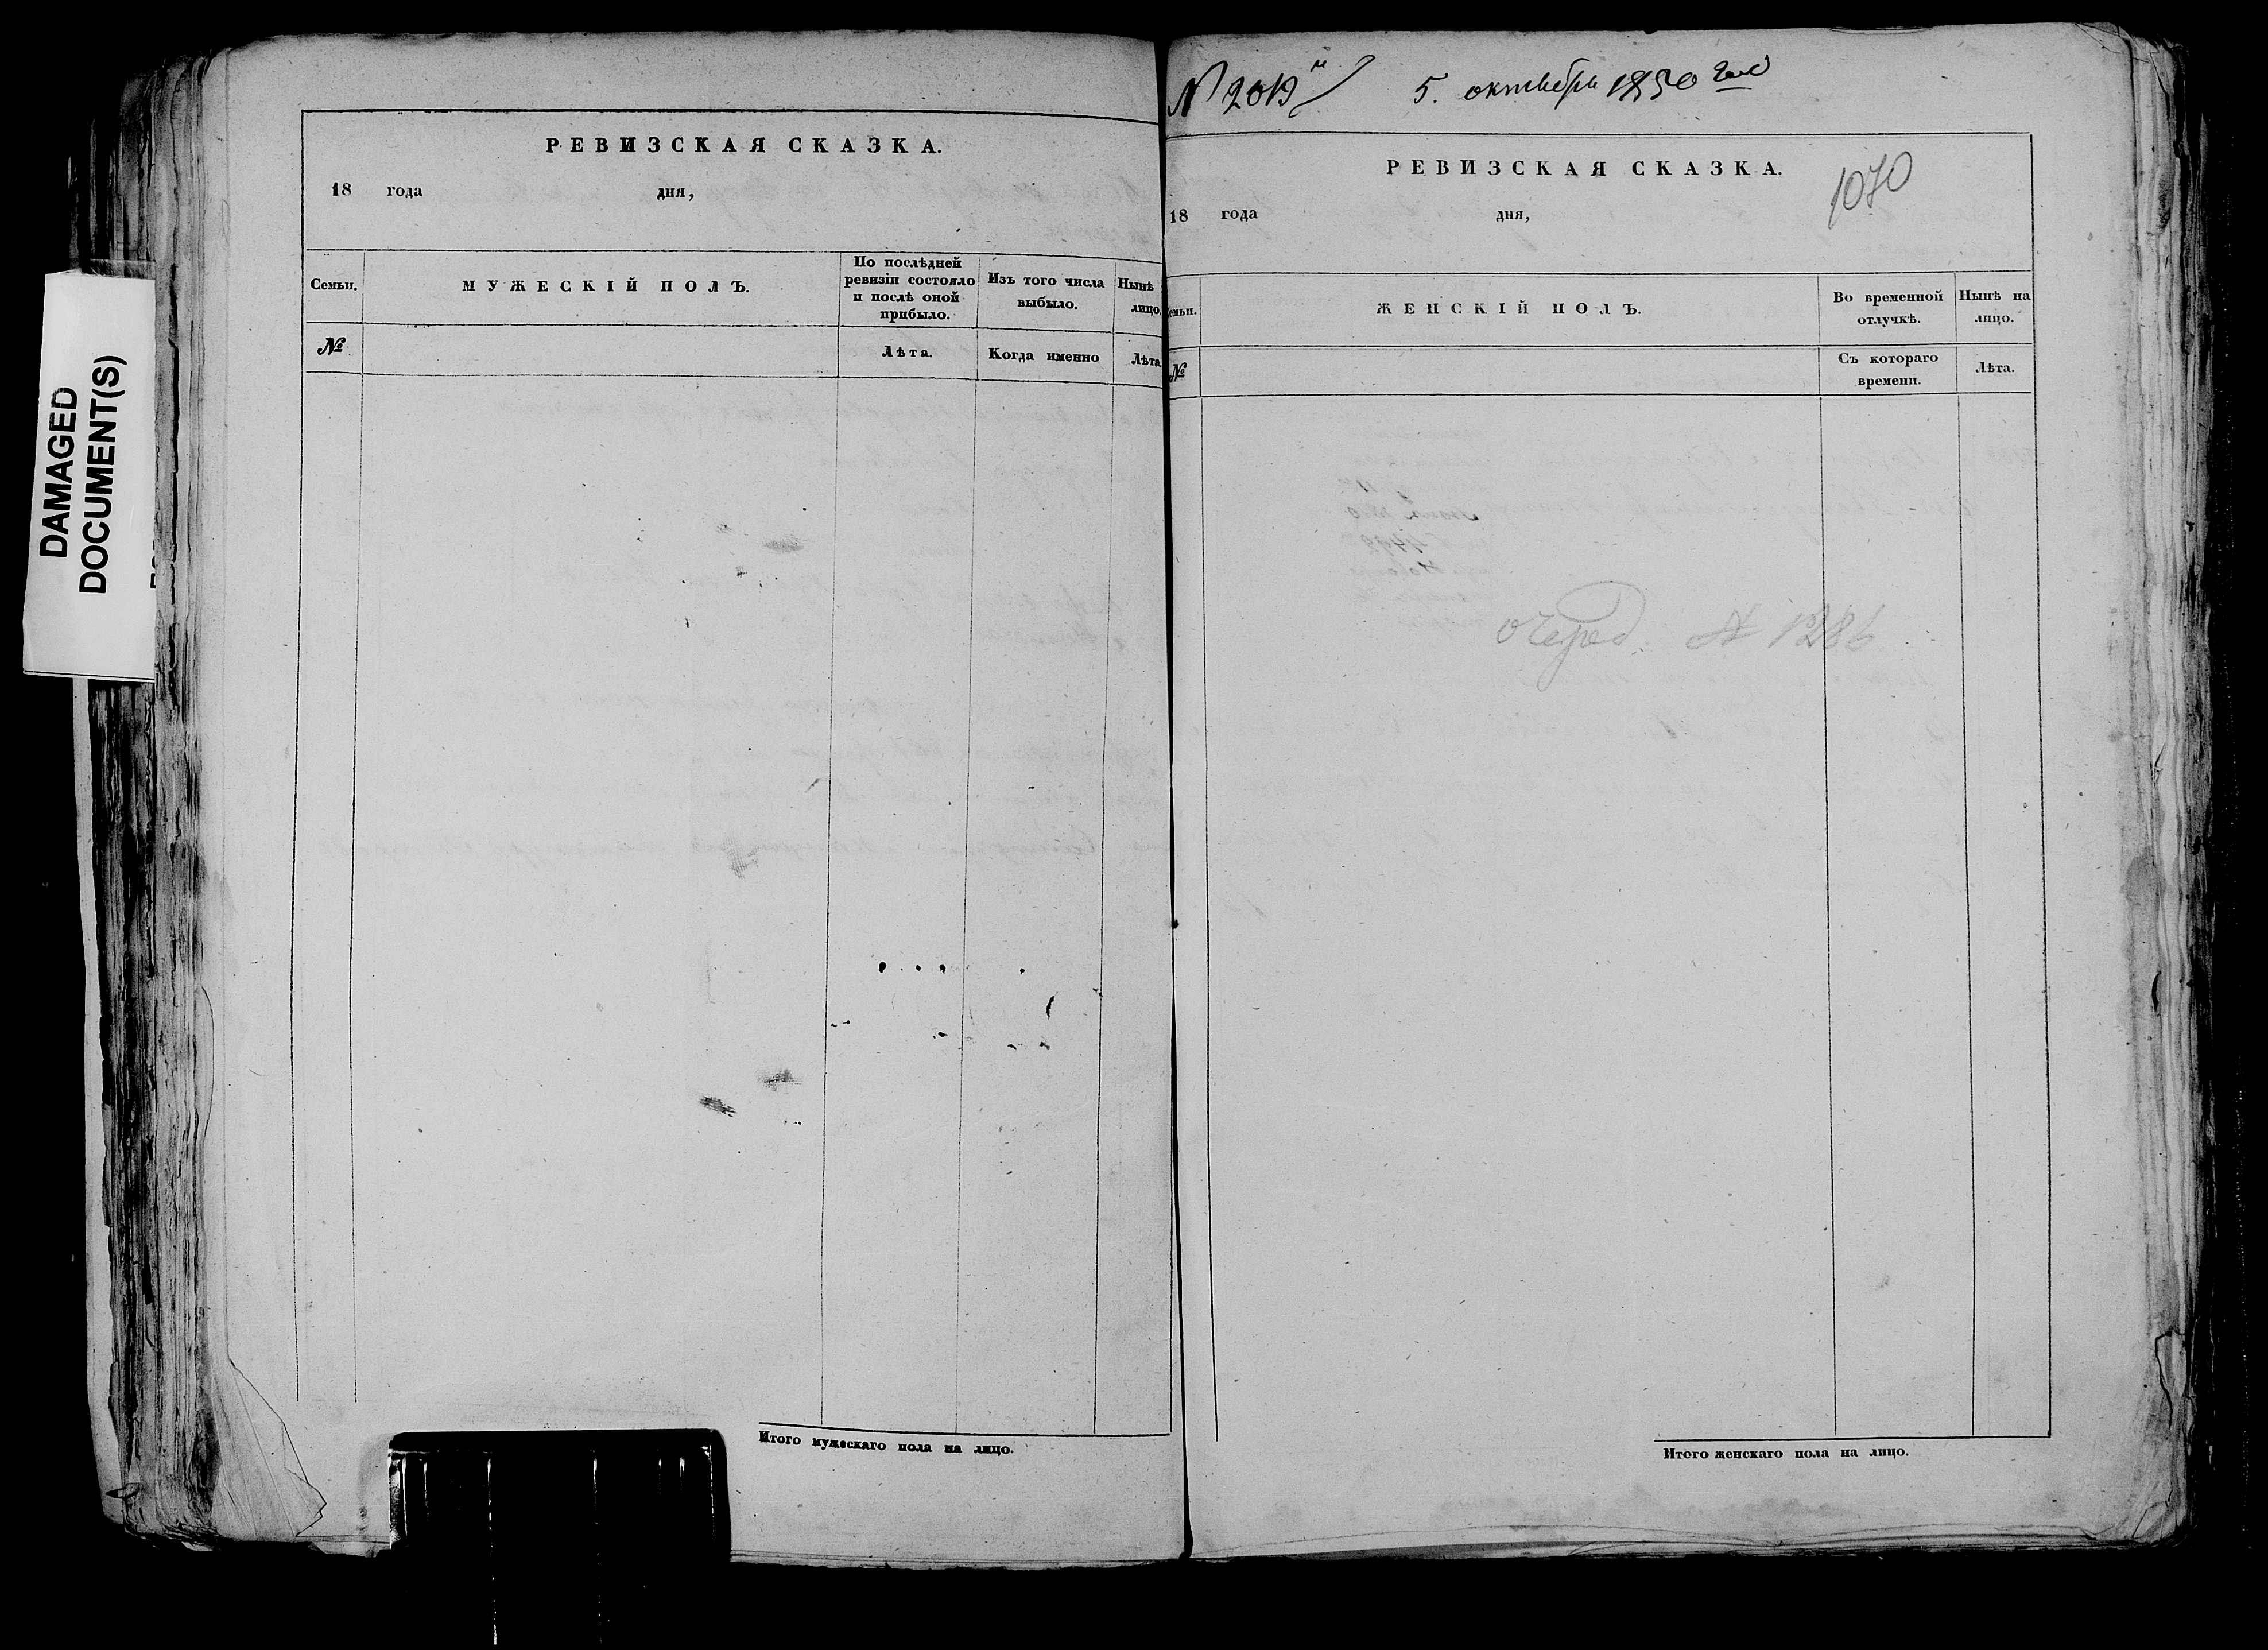 DAMAGED
DOCUMENT(S)
РЕВИЗСКАЯ СКАЗКА.
18 года дня,
Семьи.
МУЖЕСКІЙ ПОЛЪ.
По послѣдней
ревизіи состояло
и послѣ оной
прибыло.
Изъ того числа
выбыло.
Нынѣ
лицо.
№
Лѣта.
Когда именно
Лѣта
Итого мужескаго пола на лицо.
№ 2019
5. октября 1850 года
РЕВИЗСКАЯ СКАЗКА.
1070
18 года дня,
емьи.
ЖЕНСКІЙ ПОЛЪ.
Во временной
отлучкѣ.
Нынѣ на
лицо.
№
Съ котораго
времени.
Лѣта.
очеред. № 1286
Итого женскаго пола на лицо.